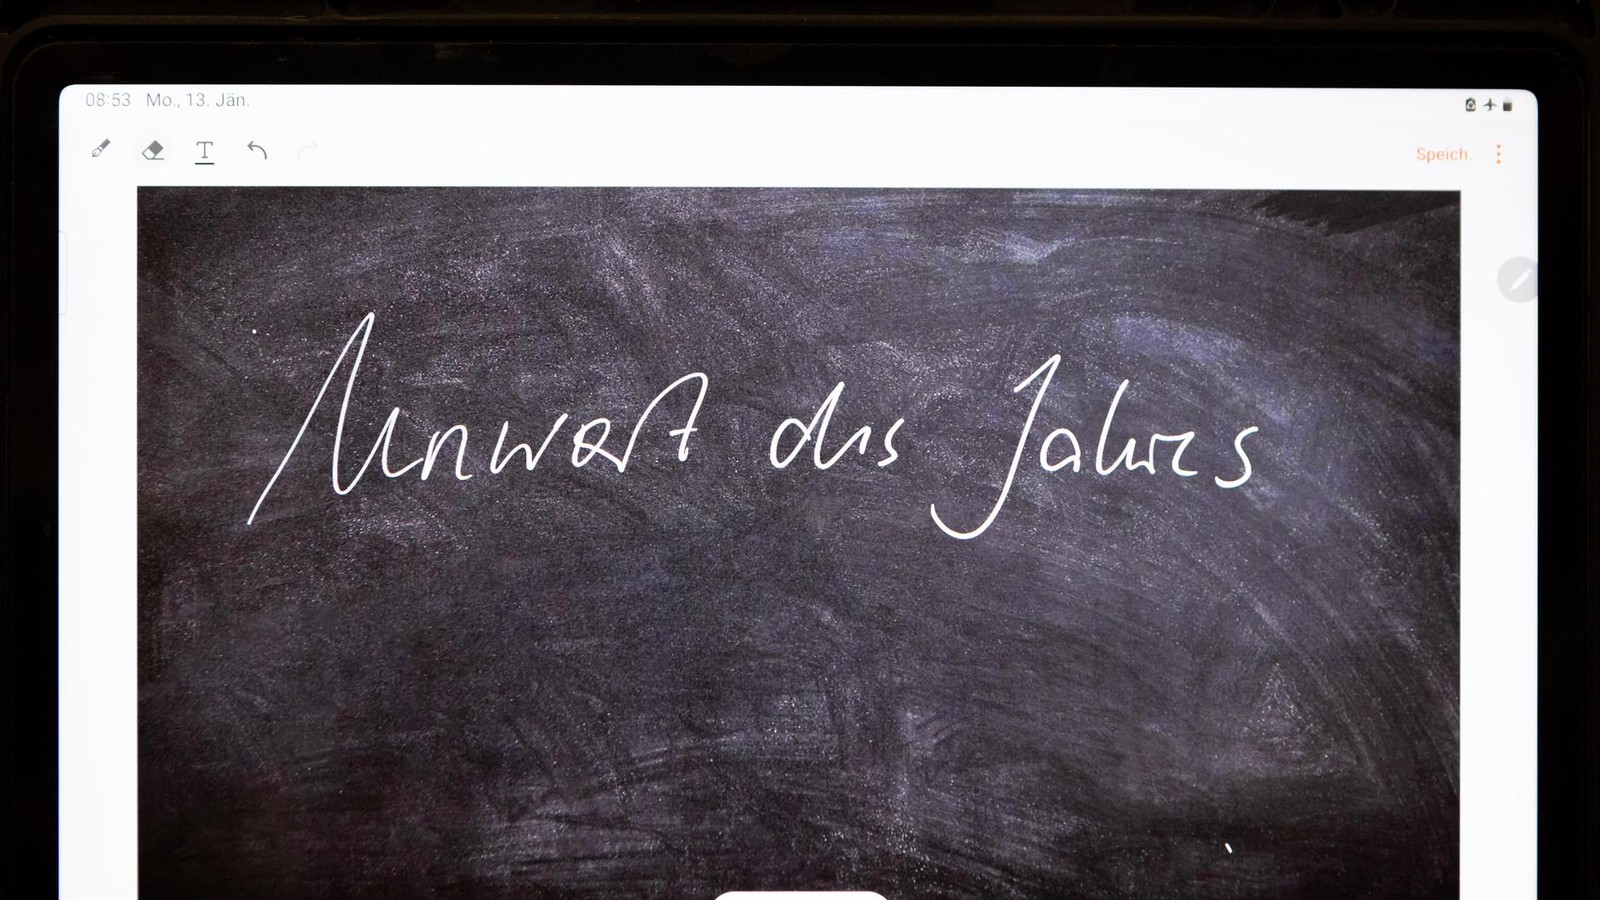 08:53 Mo., 13. Jän.
T
Speich.
Unwort des Jahres